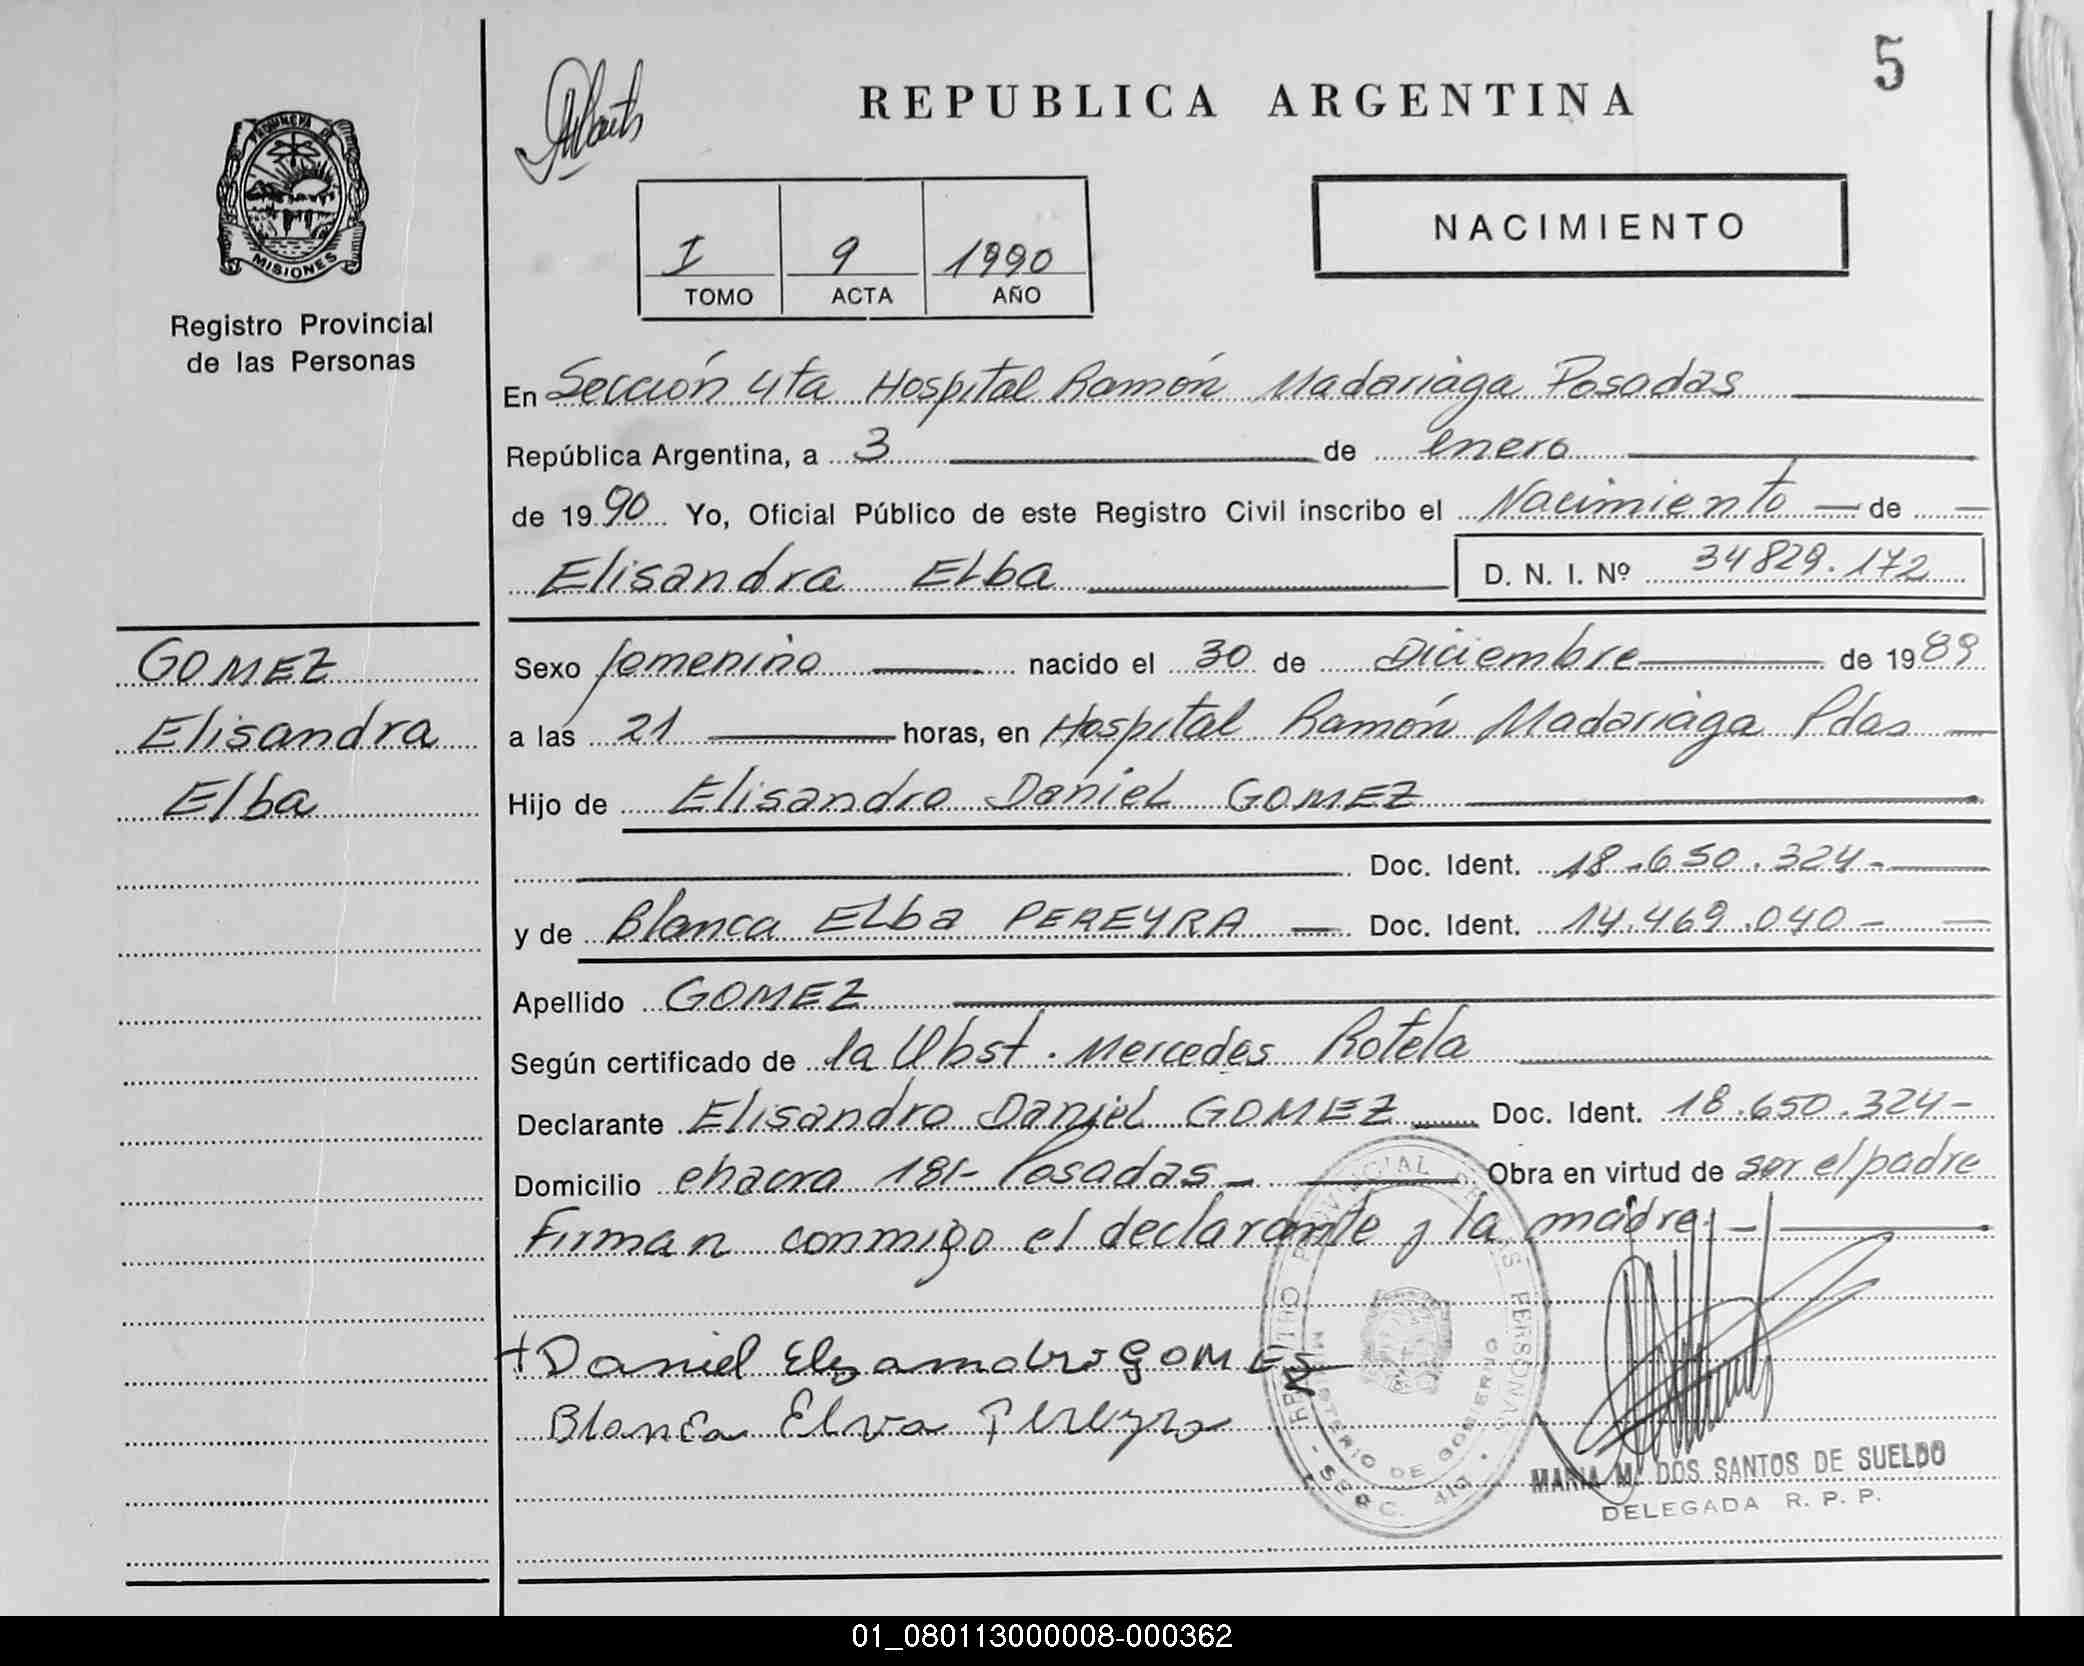 5
REPUBLICA ARGENTINA
PROVINCIA DE
MISIONES
Registro Provincial
de las Personas
I 9 1990
TOMO ACTA AÑO
NACIMIENTO
En Sección 4ta Hospital Ramón Madariaga Posadas
República Argentina, a 3 de enero
de 1990 Yo, Oficial Público de este Registro Civil inscribo el Nacimiento de
Elisandra Elba D. N. I. Nº 34829.172
GOMEZ
Elisandra
Elba
Sexo femenino nacido el 30 de Diciembre de 1989
a las 21 horas, en Hospital Ramón Madariaga Pdas
Hijo de Elisandro Daniel GOMEZ
Doc. Ident. 18.650.324-
y de Blanca Elba PEREYRA Doc. Ident. 14.469.040-
Apellido GOMEZ
Según certificado de la Obst. Mercedes Rotela
Declarante Elisandro Daniel GOMEZ Doc. Ident. 18.650.324-
Domicilio chacra 181- Posadas - Obra en virtud de ser el padre
Firman conmigo el declarante y la madre. -
Daniel Elisandro GOMEZ
Blanca Elva Pereyra
REGISTRO PROVINCIAL DE LAS PERSONAS
MINISTERIO DE GOBIERNO
MARIA M. DOS SANTOS DE SUELDO
DELEGADA R. P. P.
01_080113000008-000362